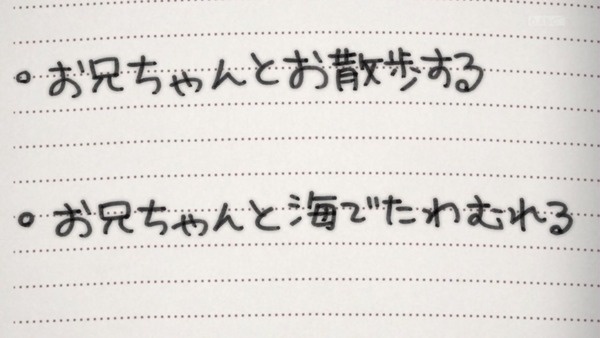 。お兄ちゃんとお散歩する
。お兄ちゃんと海でたわむれる